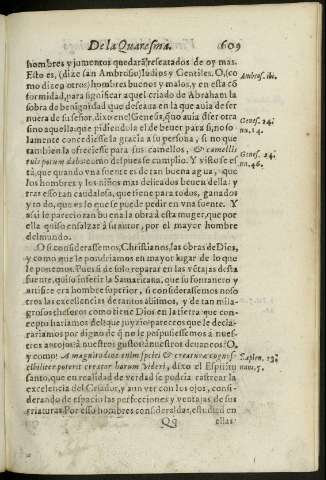 De la Quaresma. 609
hombres y jumentos quedarã rescatados de oy mas.
Esto es, (dize san Ambrosio) Iudios y Gentiles. O, (co
mo dizen otros) hombres buenos y malos, y en esta cõ
formidad, para significar aquel criado de Abraham la
sobra de benignidad que deseaua en la que auia de ser
nuera de su señor, dixo en el Genesis, que no auia de ser otra
sino aquella que pidiendola el de beuer para si, no so-
lamente concediesse la gracia a su persona, si no que
tambien la ofreciesse para sus camellos, & camellis
tuis potum dabo: como despues se cumplio. Y visto se es
tà, que quando vna fuente es de tan buena agua, que
los hombres y los niños mas delicados beuen della: y
tras esso tan caudalosa, que tiene para todos, ganados
y todo, que es lo que se puede pedir en vna fuente. Y
assi le parecio tan buena la obra à esta muger, que por
ella quiso ensalzar à su autor, por el mayor hombre
del mundo.
O si considerassemos, Christianos, las obras de Dios,
y como que le pondriamos en mayor lugar de lo que
le ponemos. Pues si de solo reparar en las vẽtajas desta
fuente, quiso inferir la Samaritana, que su fontanero y
artifice era hombre superior, si considerassemos noso
tros las excellencias de tantos abismos, y de tan mila-
grosos chesoros como tiene Dios en la tierra que con-
cepto hariamos del: que juyzio: pareceres que le decla-
rariamos por digno de q̃ no le pospusiessemos à nues-
tros antojos: à nuestros gustos: à nuestros deuaneos? O,
y como! A magnitudine enim speciei & creaturæ cognos-
cibiliter poterit creator horum videri, dixo el Espiritu
santo, que en realidad de verdad se podria rastrear la
excelencia del Criador, y aun ver con los ojos, consi-
derando de espacio las perfecciones y ventajas de sus
criaturas. Por esso hombres consideraldas, estudiad en
Qq ellas
Ambros. ibi.
Genes. 24.
nu. 14.
Genes. 24.
nu. 46.
Sapien. 13.
num. 5.